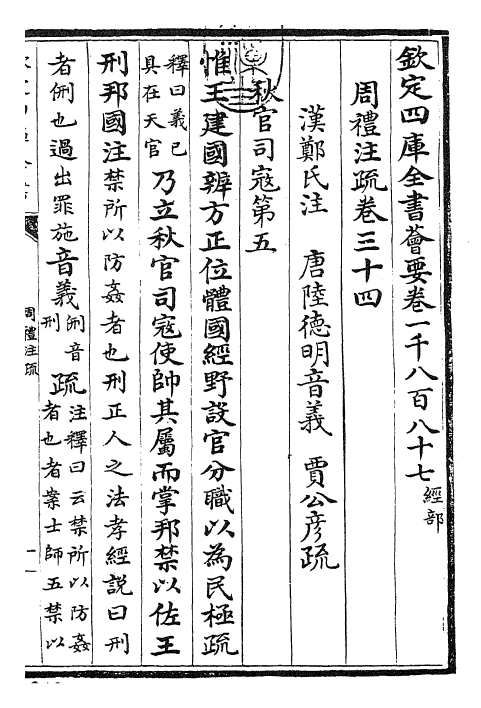 欽定四庫全書薈要卷一千八百八十七 經部
周禮注疏卷三十四
漢鄭氏注 唐陸德明音義 賈公彦疏
秋官司寇第五
惟王建國辨方正位體國經野設官分職以為民極疏
釋曰義已
具在天官
乃立秋官司寇使帥其屬而掌邦禁以佐王
刑邦國注禁所以防姦者也刑正人之法孝經説曰刑
者侀也過出罪施音義
侀音
刑
疏
注釋曰云禁所以防姦
者也者案士師五禁以
周禮注疏